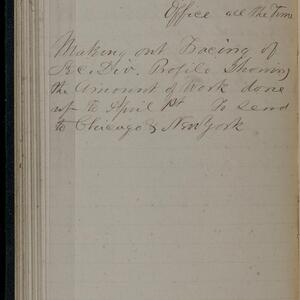 Office all the Time
Making out Tracing of
Sec. Div. Profile Showing
the Amount of Work done
up to April 1st to send
to Chicago & New York